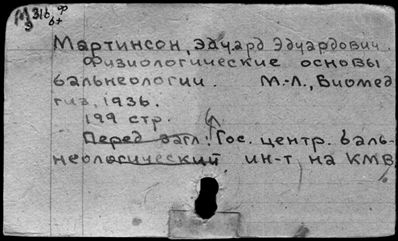 Мартинсон, Эдуард Эдуардович.
Физиологические основы
бальнеологии. М.-Л., Биомед
гиз, 1936.
199 стр.
Перед загл.: Гос. центр. баль-
неологический ин-т на КМВ.